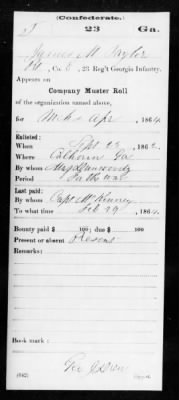 (Confederate.)
T 23 Ga.
James M. Taylor
Co. E, 23 Reg't Georgia Infantry.
Appears on
Company Muster Roll
of the organization named above,
for Mch & Apr, 1864
Enlisted:
When Sept 23, 1862
Where Calhoun Ga
By whom Maj Dunwoody
Period For the war
Last paid:
By whom Capt McKinney
To what time Feb 29, 1864
Bounty paid $ 100; due $ 100
Present or absent Present
Remarks:
Book mark:
(642) Copyist.